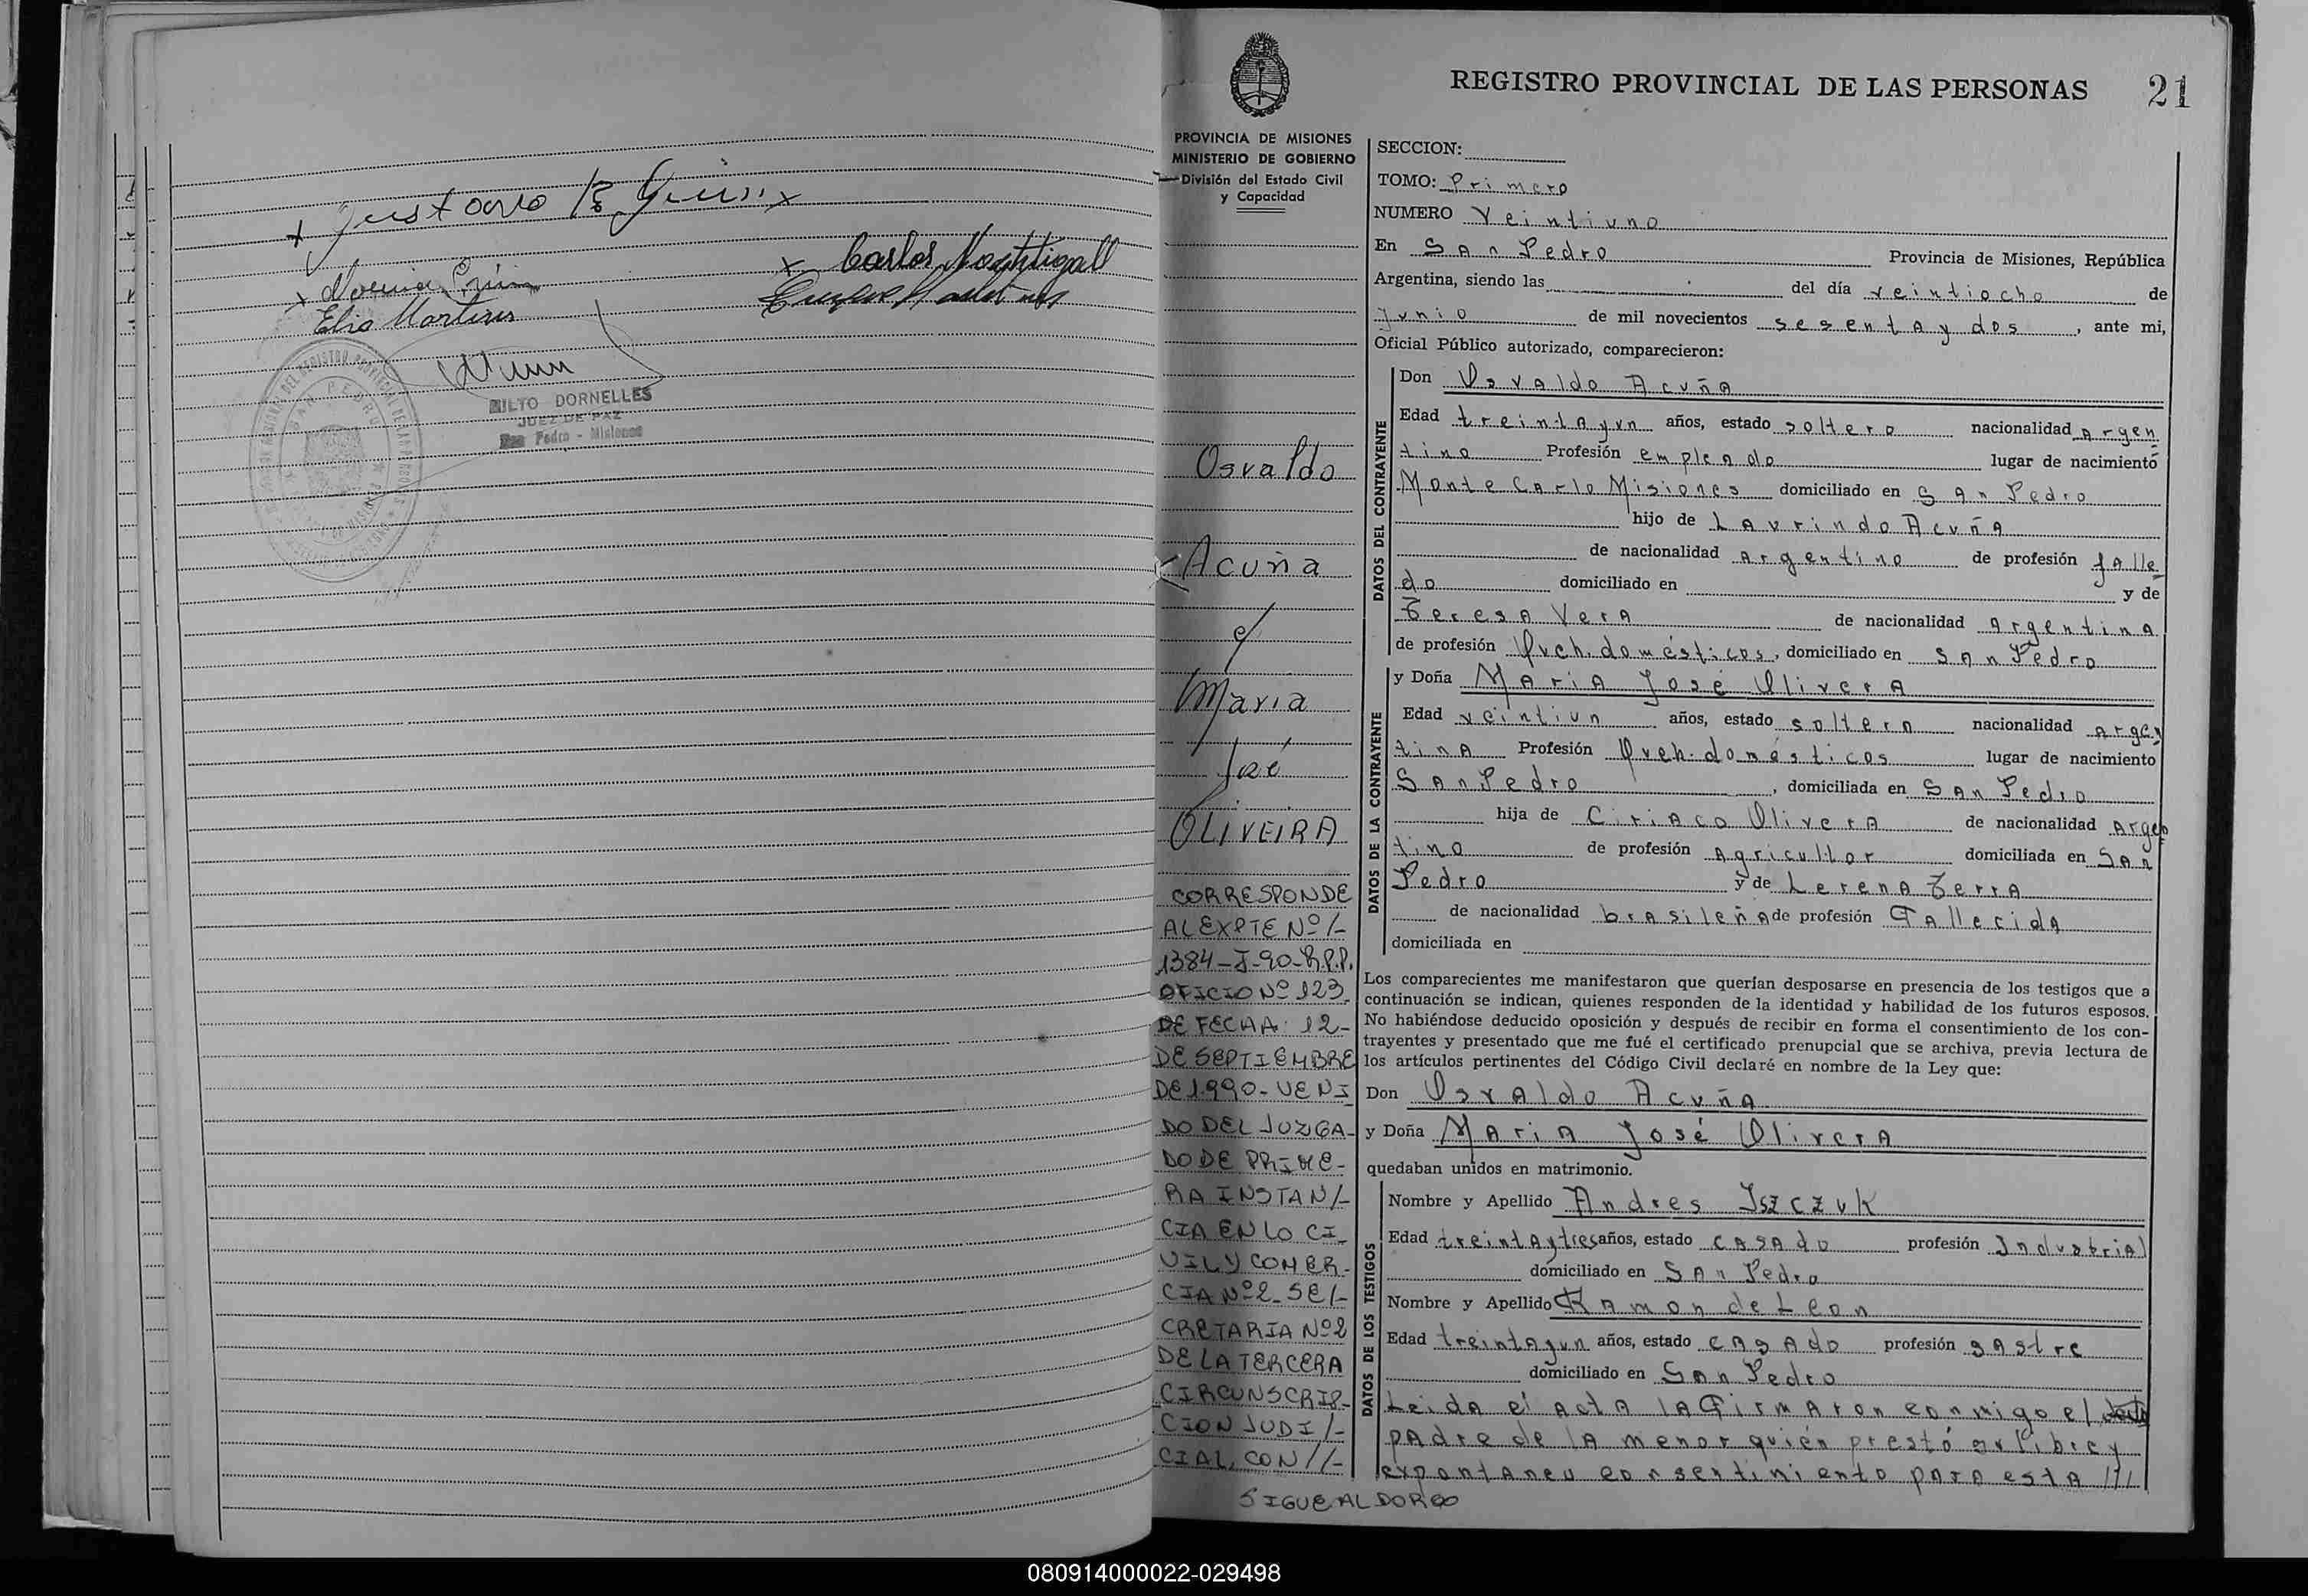 x Gustavo B
x Carlos Nachtigall
x Norma
Elio Martins
MILTO DORNELLES
JUEZ DE PAZ
San Pedro - Misiones
REGISTRO PROVINCIAL DE LAS PERSONAS 21
PROVINCIA DE MISIONES
MINISTERIO DE GOBIERNO
División del Estado Civil
y Capacidad
Osvaldo
Acuña
y
Maria
José
OLIVEIRA
CORRESPONDE
AL EXPTE Nº/-
1384-J-90-R.P.P.
OFICIO Nº 123
DE FECHA 12-
DE SEPTIEMBRE
DE 1.990- VENI
DO DEL JUZGA-
DO DE PRIME-
RA INSTAN/-
CIA EN LO CI-
VIL Y COMER-
CIA Nº2- SE/-
CRETARIA Nº2
DE LA TERCERA
CIRCUNSCRIP-
CION JUDI/-
CIAL, CON //-
SIGUE AL DORSO
SECCION:
TOMO: Primero
NUMERO Veintiuno
En San Pedro Provincia de Misiones, República
Argentina, siendo las del día veintiocho de
Junio de mil novecientos sesenta y dos, ante mi,
Oficial Público autorizado, comparecieron:
DATOS DEL CONTRAYENTE
Don Osvaldo Acuña
Edad treinta y un años, estado soltero nacionalidad Argen
tino Profesión empleado lugar de nacimiento
Monte Carlo Misiones domiciliado en San Pedro
hijo de Laurindo Acuña
de nacionalidad Argentino de profesión falle
do domiciliado en y de
Teresa Vera de nacionalidad Argentina
de profesión Queh. domésticos, domiciliado en San Pedro
DATOS DE LA CONTRAYENTE
y Doña Maria José Olivera
Edad veintiun años, estado soltera nacionalidad Argen
tina Profesión Queh. domésticos lugar de nacimiento
San Pedro, domiciliada en San Pedro
hija de Ciriaco Olivera de nacionalidad Argen
tino de profesión Agricultor domiciliada en San
Pedro y de Lerena Terra
de nacionalidad brasileña de profesión Fallecida
domiciliada en
Los comparecientes me manifestaron que querían desposarse en presencia de los testigos que a
continuación se indican, quienes responden de la identidad y habilidad de los futuros esposos.
No habiéndose deducido oposición y después de recibir en forma el consentimiento de los con-
trayentes y presentado que me fué el certificado prenupcial que se archiva, previa lectura de
los artículos pertinentes del Código Civil declaré en nombre de la Ley que:
Don Osvaldo Acuña
y Doña Maria José Olivera
quedaban unidos en matrimonio.
DATOS DE LOS TESTIGOS
Nombre y Apellido Andres Iszczuk
Edad treinta y tres años, estado casado profesión Industrial
domiciliado en San Pedro
Nombre y Apellido Ramon de Leon
Edad treinta y un años, estado casado profesión sastre
domiciliado en San Pedro
Leida el acta la firmaron conmigo el
padre de la menor quién prestó su libre y
expontaneo consentimiento para esta ///
080914000022-029498